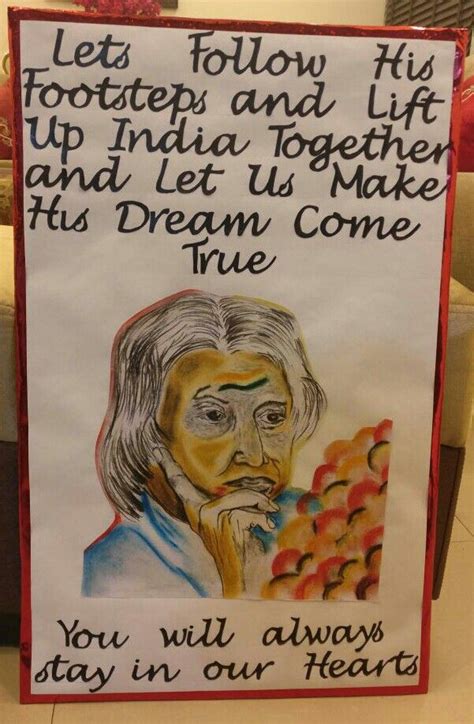 Lets Follow His
Footsteps and Lift
Up India Together
and Let Us Make
His Dream Come
True
You will always
stay in our Hearts